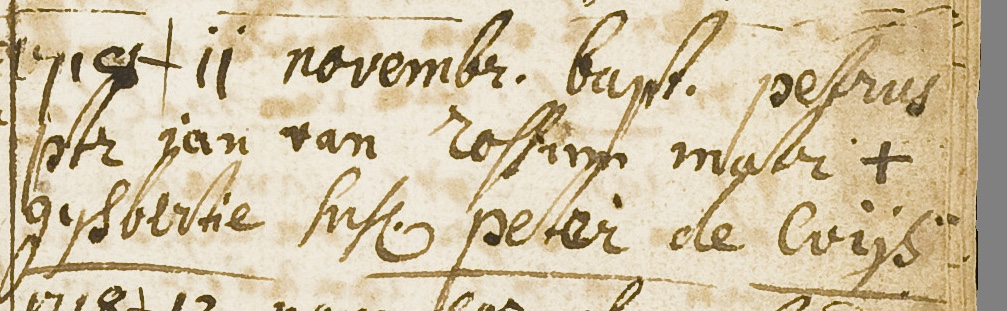 1718 + 11 novembr. bapt. petrus
ptr jan van Rossum matr +
gijsbertie susc. peter de Cuijs
1718 + 13